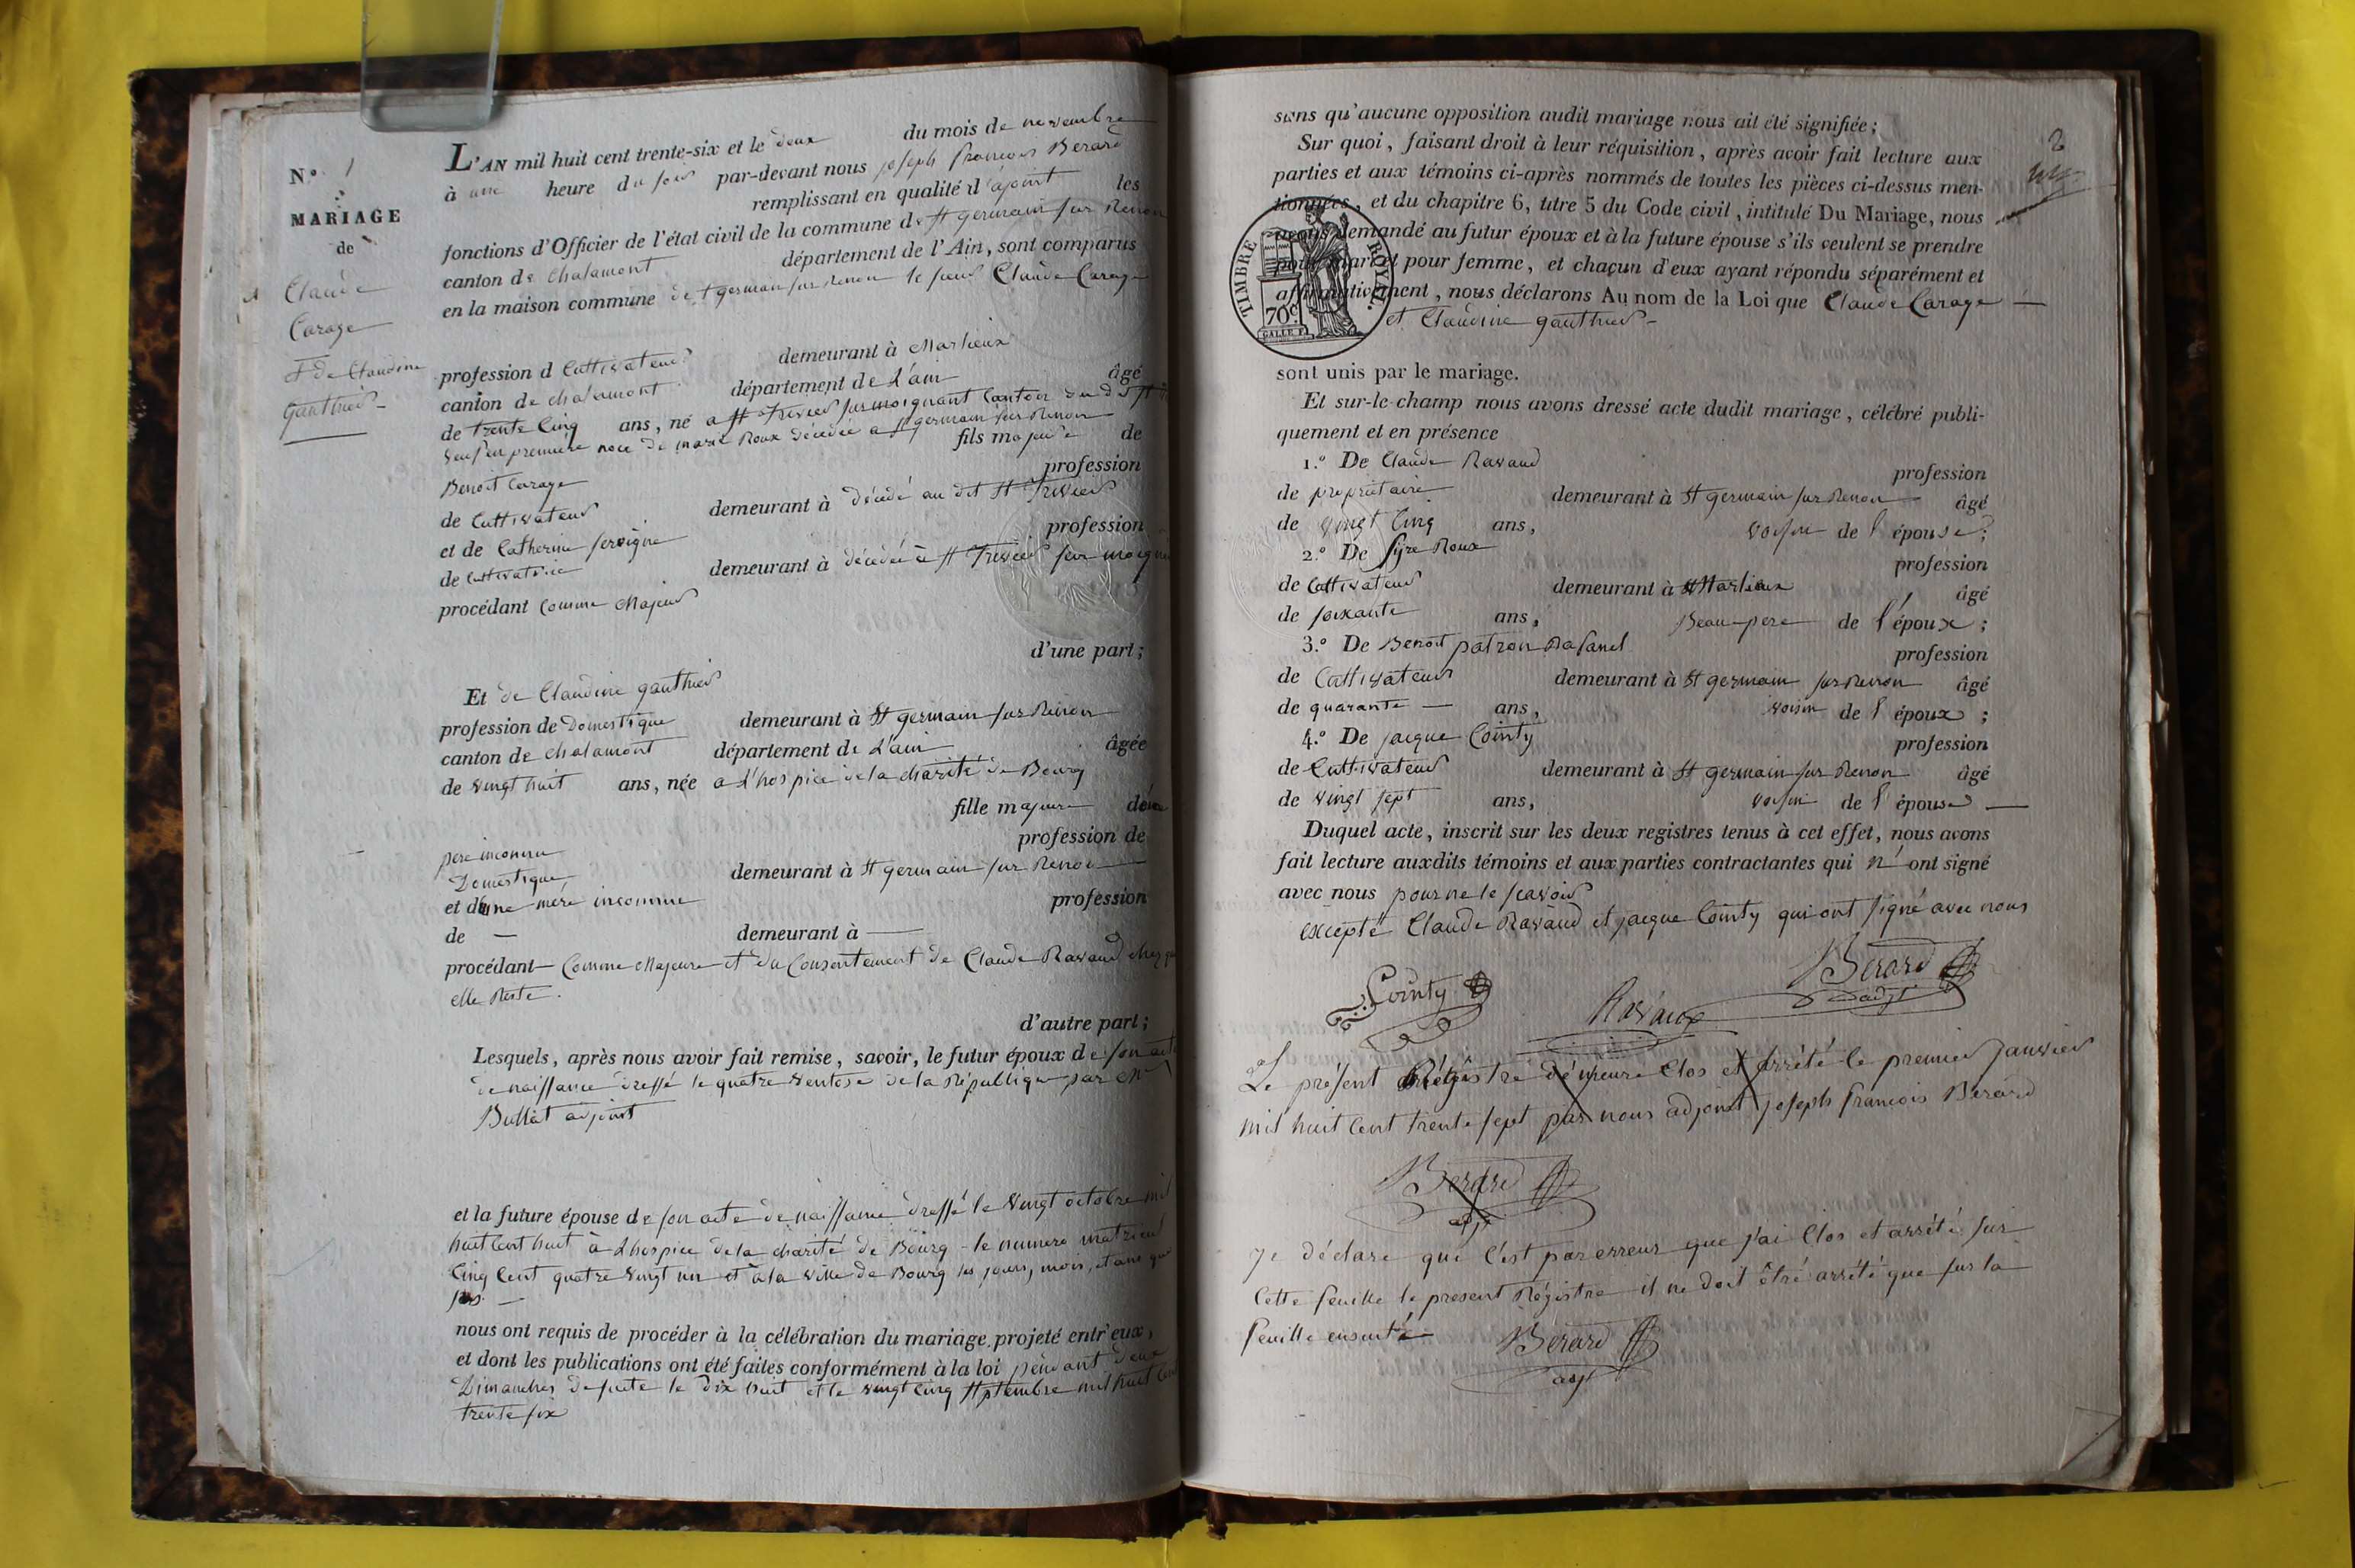 N.° 1
MARIAGE
de
Claude
Carage
et de Claudine
gauthier
L'AN mil huit cent trente-six et le deux du mois de novembre
à une heure du soir par-devant nous joseph francois Berard
remplissant en qualité d'ajoint les
fonctions d'Officier de l'état civil de la commune de St germain sur Renon
canton de chalamont département de l'Ain, sont comparus
en la maison commune de St germain sur Renon le sieur Claude Carage
profession d Cultivateur demeurant à Marlieux
canton de chalamont département de L'ain âgé
de trente Cinq ans, né a St Trivier sur moignant Canton du d St
veuf en premiere noce de marie Roux décédée a St germain sur Renon
fils majeur de
Benoit Carage profession
de Cultivateur demeurant à décédé au dit St Trivier
et de Catherine profession
de Cultivatrice demeurant à décédée à St Trivier sur
procédant Comme Majeur
d'une part;
Et de Claudine gauthier
profession de Domestique demeurant à St germain sur Renon
canton de chalamont département de L'ain âgée
de vingt huit ans, née a L'hospice de la charité de Bourg
fille majeure
pere inconnu profession de
Domestique demeurant à St germain sur Renon
et d'une mere inconnue profession
de — demeurant à —
procédant Comme Majeure et du Consentement de Claude Ravaud chez qui
elle Reste.
d'autre part;
Lesquels, après nous avoir fait remise, savoir, le futur époux de son acte
de naissance dressé le quatre ventose de la République par
Bullat adjoint
et la future épouse de son acte de naissance dressé le vingt octobre mil
huit Cent huit à L'hospice de la charité de Bourg le numero
Cinq Cent quatre vingt un et à la ville de Bourg les jours, mois, et ans que
nous ont requis de procéder à la célébration du mariage projeté entr'eux,
et dont les publications ont été faites conformément à la loi pendant deux
Dimanches le dix huit et le vingt Cinq Septembre mil huit Cent
trente six
2
sans qu'aucune opposition audit mariage nous ait été signifiée;
Sur quoi, faisant droit à leur réquisition, après avoir fait lecture aux
parties et aux témoins ci-après nommés de toutes les pièces ci-dessus men-
tionnées, et du chapitre 6, titre 5 du Code civil, intitulé Du Mariage, nous
avons demandé au futur époux et à la future épouse s'ils veulent se prendre
pour mari et pour femme, et chaçun d'eux ayant répondu séparément et
affirmativement, nous déclarons Au nom de la Loi que Claude Carage —
et Claudine gauthier -
TIMBRE ROYAL.
70c.
sont unis par le mariage.
Et sur-le-champ nous avons dressé acte dudit mariage, célébré publi-
quement et en présence
1.° De Claude Ravaud profession
de propriétaire demeurant à St germain sur Renon âgé
de vingt Cinq ans, voisin de l'épouse;
2.° De Roux profession
de Cultivateur demeurant à Marlieux âgé
de soixante ans, Beau-pere de l'époux;
3.° De Benoit patron Rafanel profession
de Cultivateur demeurant à St germain sur Renon âgé
de quarante — ans, voisin de l'époux;
4.° De jacque Cointy profession
de Cultivateur demeurant à St germain sur Renon âgé
de vingt sept ans, voisin de l'épouse —
Duquel acte, inscrit sur les deux registres tenus à cet effet, nous avons
fait lecture auxdits témoins et aux parties contractantes qui n'ont signé
avec nous pour ne le scavoir
excepté Claude Ravaud et jacque Cointy qui ont signé avec nous
Cointy Berard
adjt
Le présent Régistre demeure Clos et arrêté le premier janvier
mil huit Cent trente sept par nous adjoint joseph francois Berard
Berard
adjt
je déclare que C'est par erreur que j'ai Clos et arrété sur
Cette feuille le present Régistre il ne doit être arrété que sur la
feuille ensuite Berard
adjt